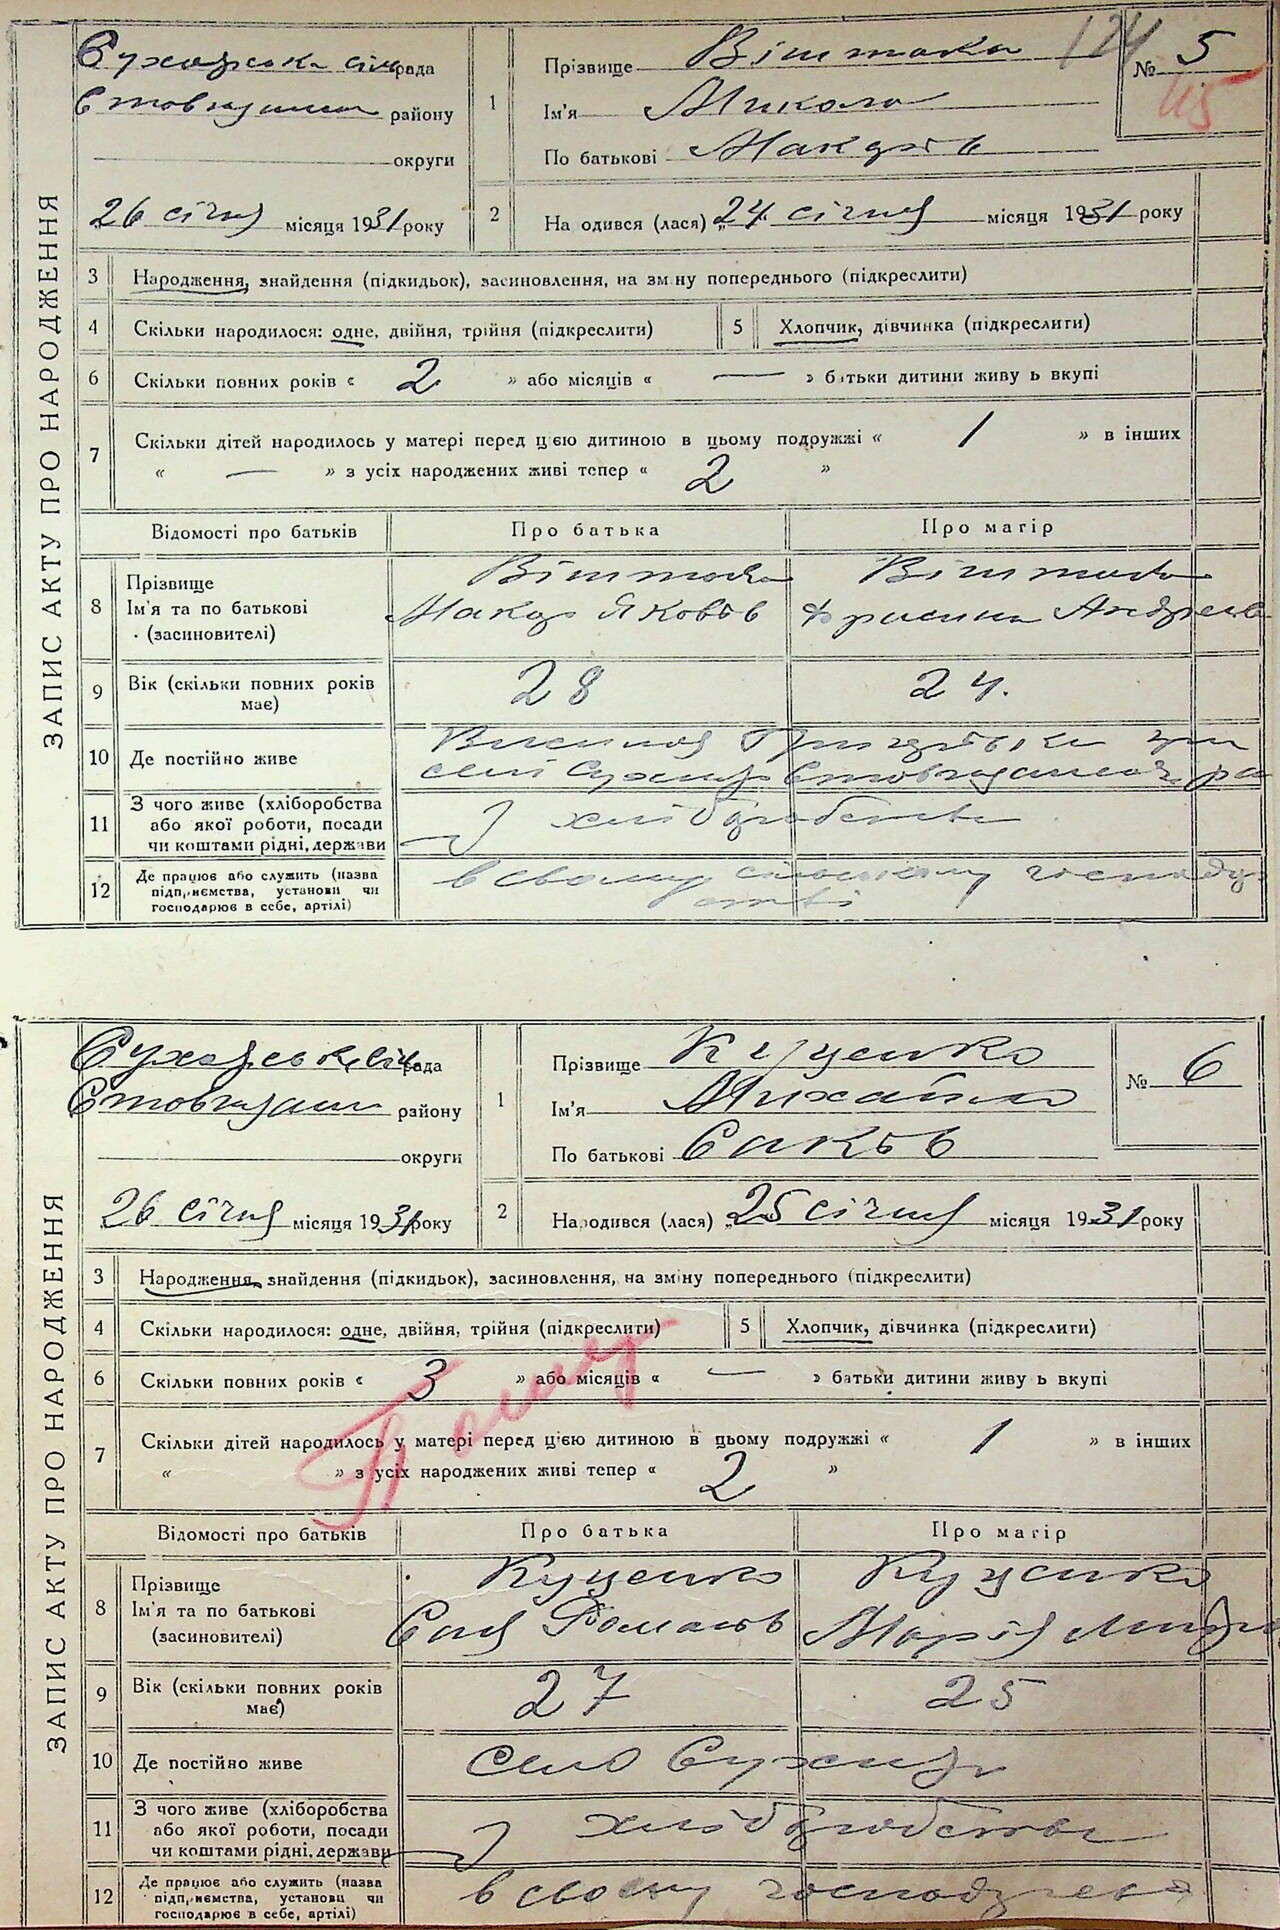 ЗАПИС АКТУ ПРО НАРОДЖЕННЯ
рада
району
округи
26 січня місяця 1931 року
1
Прізвище
Ім'я Микола
По батькові Макарів
№ 5
174
45
2
На одився (лася) „24 січня місяця 1931 року
3 Народження, знайдення (підкидьок), засиновлення, на зміну попереднього (підкреслити)
4 Скільки народилося: одне, двійня, трійня (підкреслити) 5 Хлопчик, дівчинка (підкреслити)
6 Скільки повних років « 2 » або місяців « — » батьки дитини живу ь вкупі
7 Скільки дітей народилось у матері перед цією дитиною в цьому подружжі « 1 » в інших
« — » з усіх народжених живі тепер « 2 »
Відомості про батьків Про батька Про матір
8 Прізвище
Ім'я та по батькові Макар Яковів
(засиновителі)
9 Вік (скільки повних років має) 28 24.
10 Де постійно живе
11 З чого живе (хліборобства
або якої роботи, посади
чи коштами рідні, держави
З хліборобства
12 Де працює або служить (назва
підприємства, установи чи
господарює в себе, артілі)
в своєму сільському господарстві
ЗАПИС АКТУ ПРО НАРОДЖЕННЯ
рада
району
округи
26 січня місяця 1931 року
1
Прізвище Куценко
Ім'я Михайло
По батькові Саків
№ 6
2
Народився (лася) „25 січня місяця 1931 року
3 Народження, знайдення (підкидьок), засиновлення, на зміну попереднього (підкреслити)
4 Скільки народилося: одне, двійня, трійня (підкреслити) 5 Хлопчик, дівчинка (підкреслити)
6 Скільки повних років « 3 » або місяців « — » батьки дитини живу ь вкупі
7 Скільки дітей народилось у матері перед цією дитиною в цьому подружжі « 1 » в інших
« » з усіх народжених живі тепер « 2 »
Відомості про батьків Про батька Про матір
8 Прізвище Куценко Куценко
Ім'я та по батькові Романів Марія
(засиновителі)
9 Вік (скільки повних років має) 27 25
10 Де постійно живе село
11 З чого живе (хліборобства
або якої роботи, посади
чи коштами рідні, держави
З хліборобства
12 Де працює або служить (назва
підприємства, установи чи
господарює в себе, артілі)
в своєму